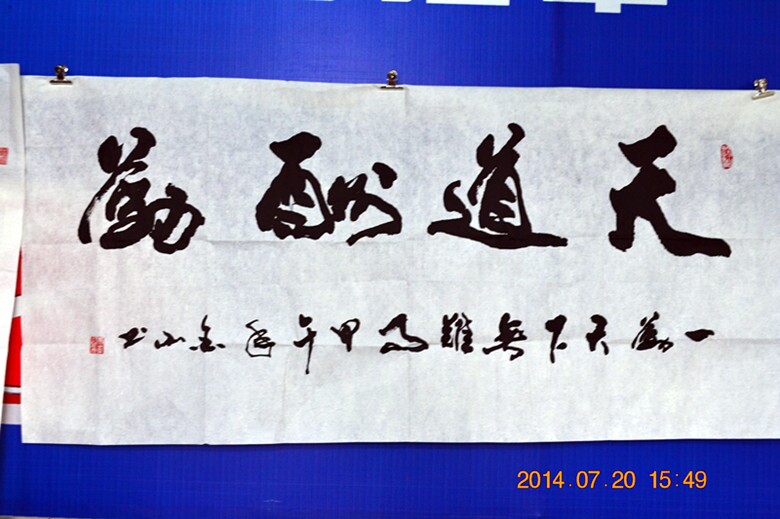 天道酬勤
一勤天下無難事甲午夏金山书
2014.07.20 15:49